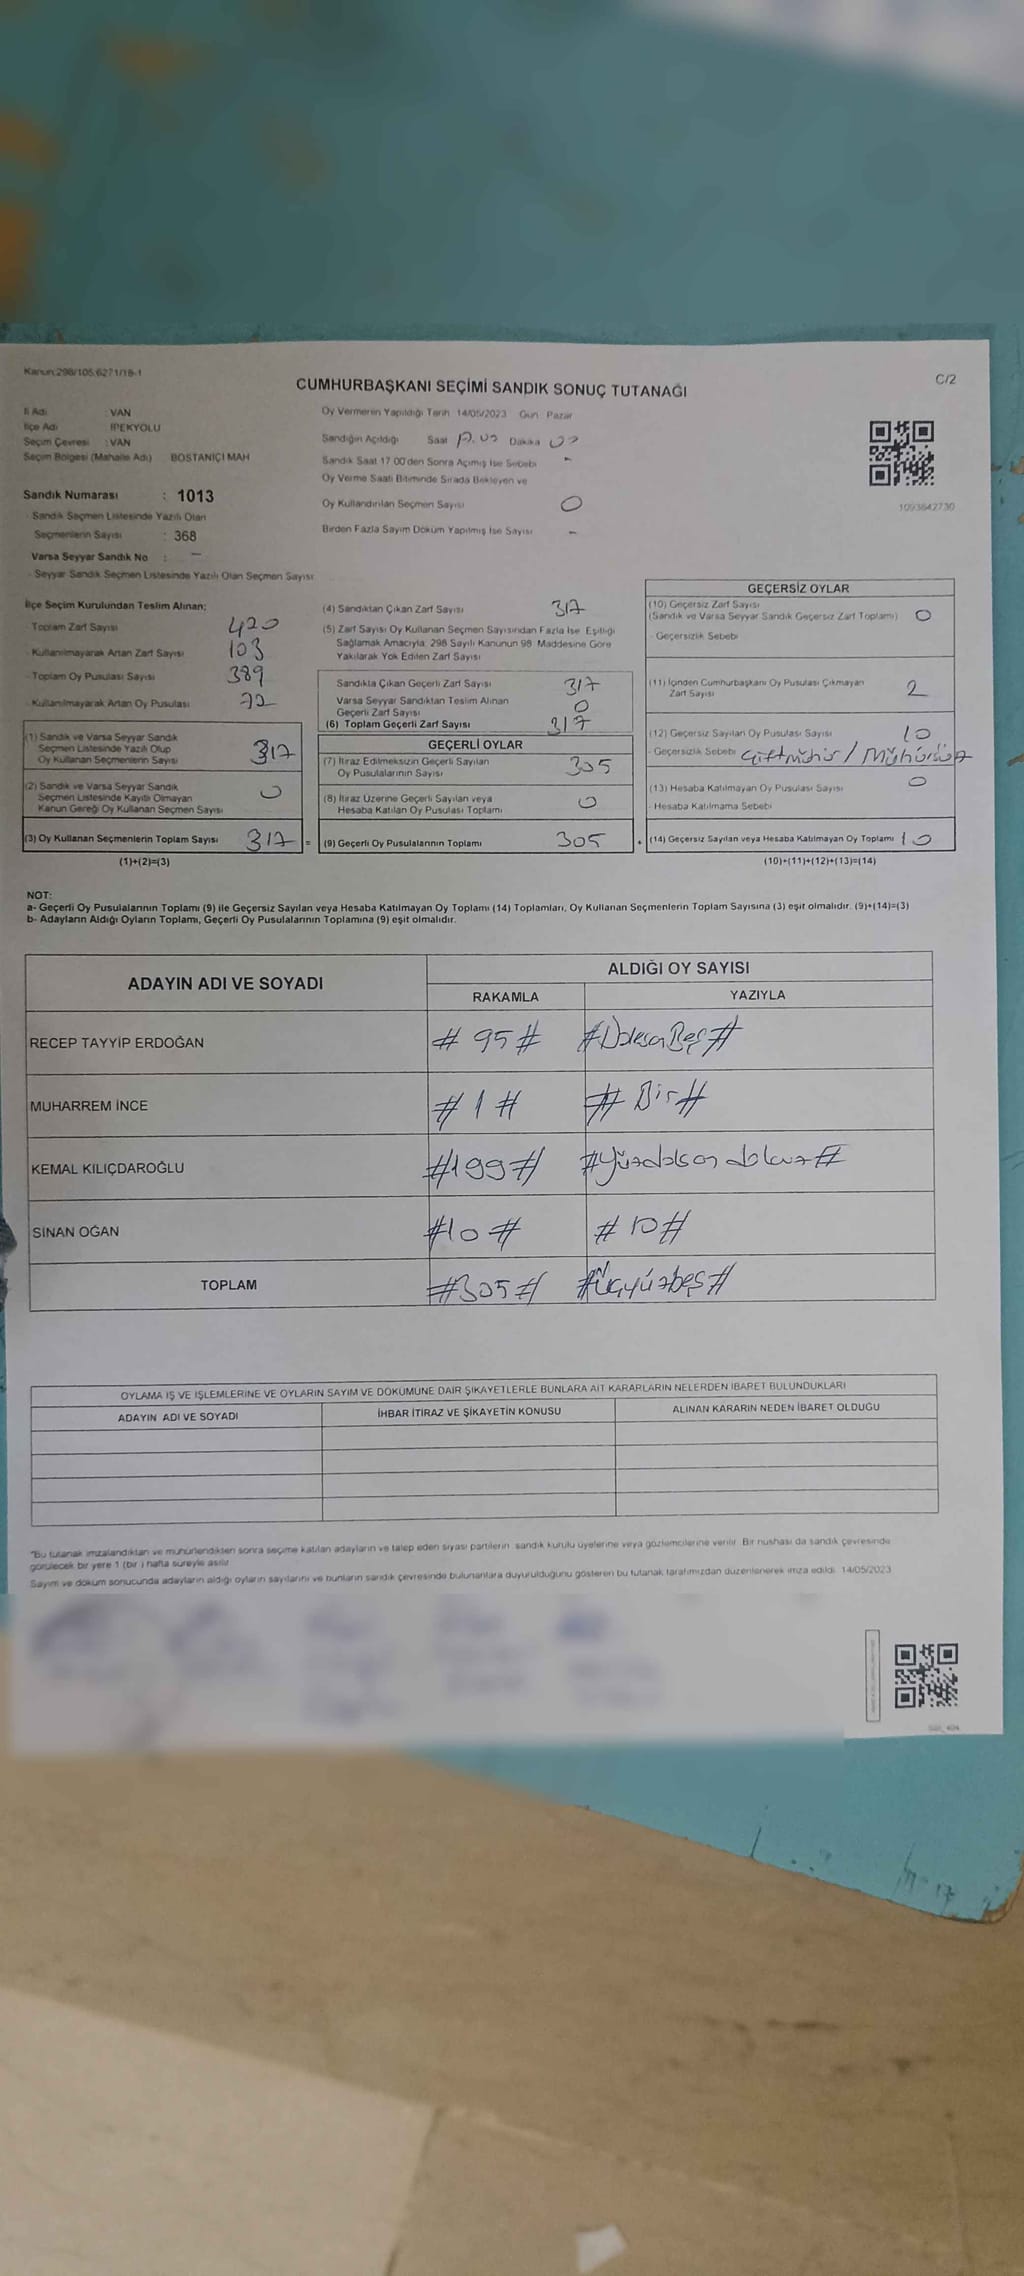 Kanun:298/105,6271/18-1
C/2
CUMHURBAŞKANI SEÇİMİ SANDIK SONUÇ TUTANAĞI
İl Adı : VAN
İlçe Adı : İPEKYOLU
Seçim Çevresi : VAN
Seçim Bölgesi (Mahalle Adı) BOSTANİÇİ MAH
Sandık Numarası : 1013
Sandık Seçmen Listesinde Yazılı Olan
Seçmenlerin Sayısı : 368
Varsa Seyyar Sandık No : -
- Seyyar Sandık Seçmen Listesinde Yazılı Olan Seçmen Sayısı
Oy Vermenin Yapıldığı Tarih 14/05/2023 Gün: Pazar
Sandığın Açıldığı Saat Dakika
Sandık Saat 17 00'den Sonra Açılmış İse Sebebi -
Oy Verme Saati Bitiminde Sırada Bekleyen ve
Oy Kullandırılan Seçmen Sayısı 0
Birden Fazla Sayım Döküm Yapılmış İse Sayısı -
1093642730
İlçe Seçim Kurulundan Teslim Alınan;
- Toplam Zarf Sayısı 420
- Kullanılmayarak Artan Zarf Sayısı 103
- Toplam Oy Pusulası Sayısı 389
- Kullanılmayarak Artan Oy Pusulası 72
(1) Sandık ve Varsa Seyyar Sandık
Seçmen Listesinde Yazılı Olup
Oy Kullanan Seçmenlerin Sayısı 317
(2) Sandık ve Varsa Seyyar Sandık
Seçmen Listesinde Kayıtlı Olmayan
Kanun Gereği Oy Kullanan Seçmen Sayısı 0
(3) Oy Kullanan Seçmenlerin Toplam Sayısı 317 =
(1)+(2)=(3)
(4) Sandıktan Çıkan Zarf Sayısı 317
(5) Zarf Sayısı Oy Kullanan Seçmen Sayısından Fazla İse Eşitliği
Sağlamak Amacıyla, 298 Sayılı Kanunun 98. Maddesine Göre
Yakılarak Yok Edilen Zarf Sayısı
Sandıkta Çıkan Geçerli Zarf Sayısı 317
Varsa Seyyar Sandıktan Teslim Alınan
Geçerli Zarf Sayısı 0
(6) Toplam Geçerli Zarf Sayısı 317
GEÇERLİ OYLAR
(7) İtiraz Edilmeksizin Geçerli Sayılan
Oy Pusulalarının Sayısı 305
(8) İtiraz Üzerine Geçerli Sayılan veya
Hesaba Katılan Oy Pusulası Toplamı 0
(9) Geçerli Oy Pusulalarının Toplamı 305 +
GEÇERSİZ OYLAR
(10) Geçersiz Zarf Sayısı
(Sandık ve Varsa Seyyar Sandık Geçersiz Zarf Toplamı) 0
- Geçersizlik Sebebi
(11) İçinden Cumhurbaşkanı Oy Pusulası Çıkmayan
Zarf Sayısı 2
(12) Geçersiz Sayılan Oy Pusulası Sayısı 10
- Geçersizlik Sebebi Çiftmühür / Mühürsüz
(13) Hesaba Katılmayan Oy Pusulası Sayısı 0
- Hesaba Katılmama Sebebi
(14) Geçersiz Sayılan veya Hesaba Katılmayan Oy Toplamı 10
(10)+(11)+(12)+(13)=(14)
NOT:
a- Geçerli Oy Pusulalarının Toplamı (9) ile Geçersiz Sayılan veya Hesaba Katılmayan Oy Toplamı (14) Toplamları, Oy Kullanan Seçmenlerin Toplam Sayısına (3) eşit olmalıdır. (9)+(14)=(3)
b- Adayların Aldığı Oyların Toplamı, Geçerli Oy Pusulalarının Toplamına (9) eşit olmalıdır.
ADAYIN ADI VE SOYADI ALDIĞI OY SAYISI
RAKAMLA YAZIYLA
RECEP TAYYİP ERDOĞAN #95# #DoksanBeş#
MUHARREM İNCE #1# #Bir#
KEMAL KILIÇDAROĞLU #199# #Yüzdoksan dokuz#
SİNAN OĞAN #10# #10#
TOPLAM #305# #Üçyüzbeş#
OYLAMA İŞ VE İŞLEMLERİNE VE OYLARIN SAYIM VE DÖKÜMÜNE DAİR ŞİKAYETLERLE BUNLARA AİT KARARLARIN NELERDEN İBARET BULUNDUKLARI
ADAYIN ADI VE SOYADI İHBAR İTİRAZ VE ŞİKAYETİN KONUSU ALINAN KARARIN NEDEN İBARET OLDUĞU
"Bu tutanak imzalandıktan ve mühürlendikten sonra seçime katılan adayların ve talep eden siyasi partilerin sandık kurulu üyelerine veya gözlemcilerine verilir. Bir nüshası da sandık çevresinde
görülecek bir yere 1 (bir ) hafta süreyle asılır
Sayım ve döküm sonucunda adayların aldığı oyların sayılarını ve bunların sandık çevresinde bulunanlara duyurulduğunu gösteren bu tutanak tarafımızdan düzenlenerek imza edildi. 14/05/2023